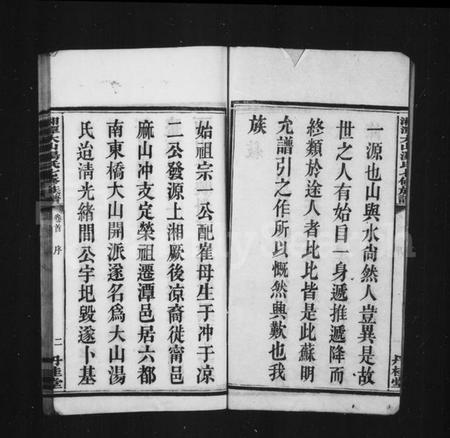 一源也山與水尚然人豈異是故
世之人有始目一身遞推遞降而
終類於途人者比比皆是此蘇明
允譜引之作所以慨然興歎也我
族
始祖宗一公配崔母生于冲于凉
二公發源上湘厥後凉裔徙甯邑
麻山冲支定榮祖遷潭邑居六都
南東橋大山開派遂名為大山湯
氏迨清光緒間公宇圯毀遂卜基
卷首 序
二 丹桂堂